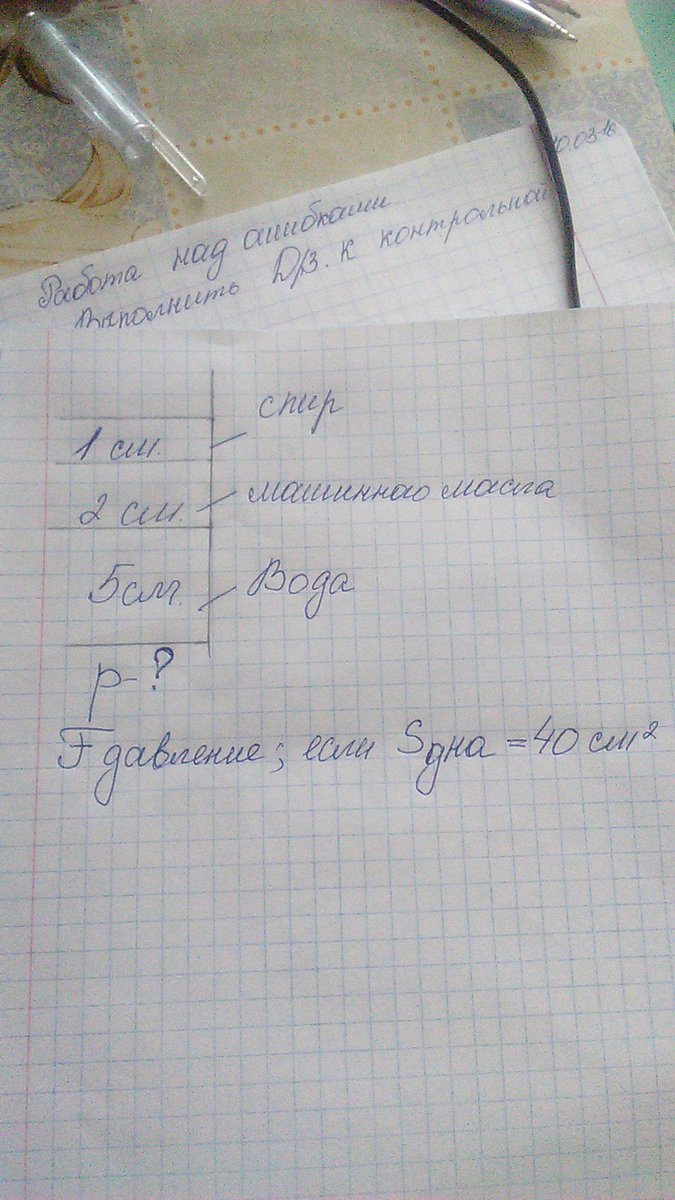 10.03.16
Работа над ошибками
Выполнить Д/З. к контрольной
спир
1 см.
2 см. машинное масла
5см. Вода
p-?
F давление; если Sдна = 40 см²